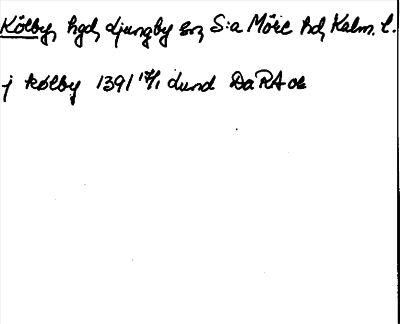 Kölby, hgd, Ljungby sn, S:a Möre hd, Kalm. l.
j kolby 1391 17/1 dund DaRA or